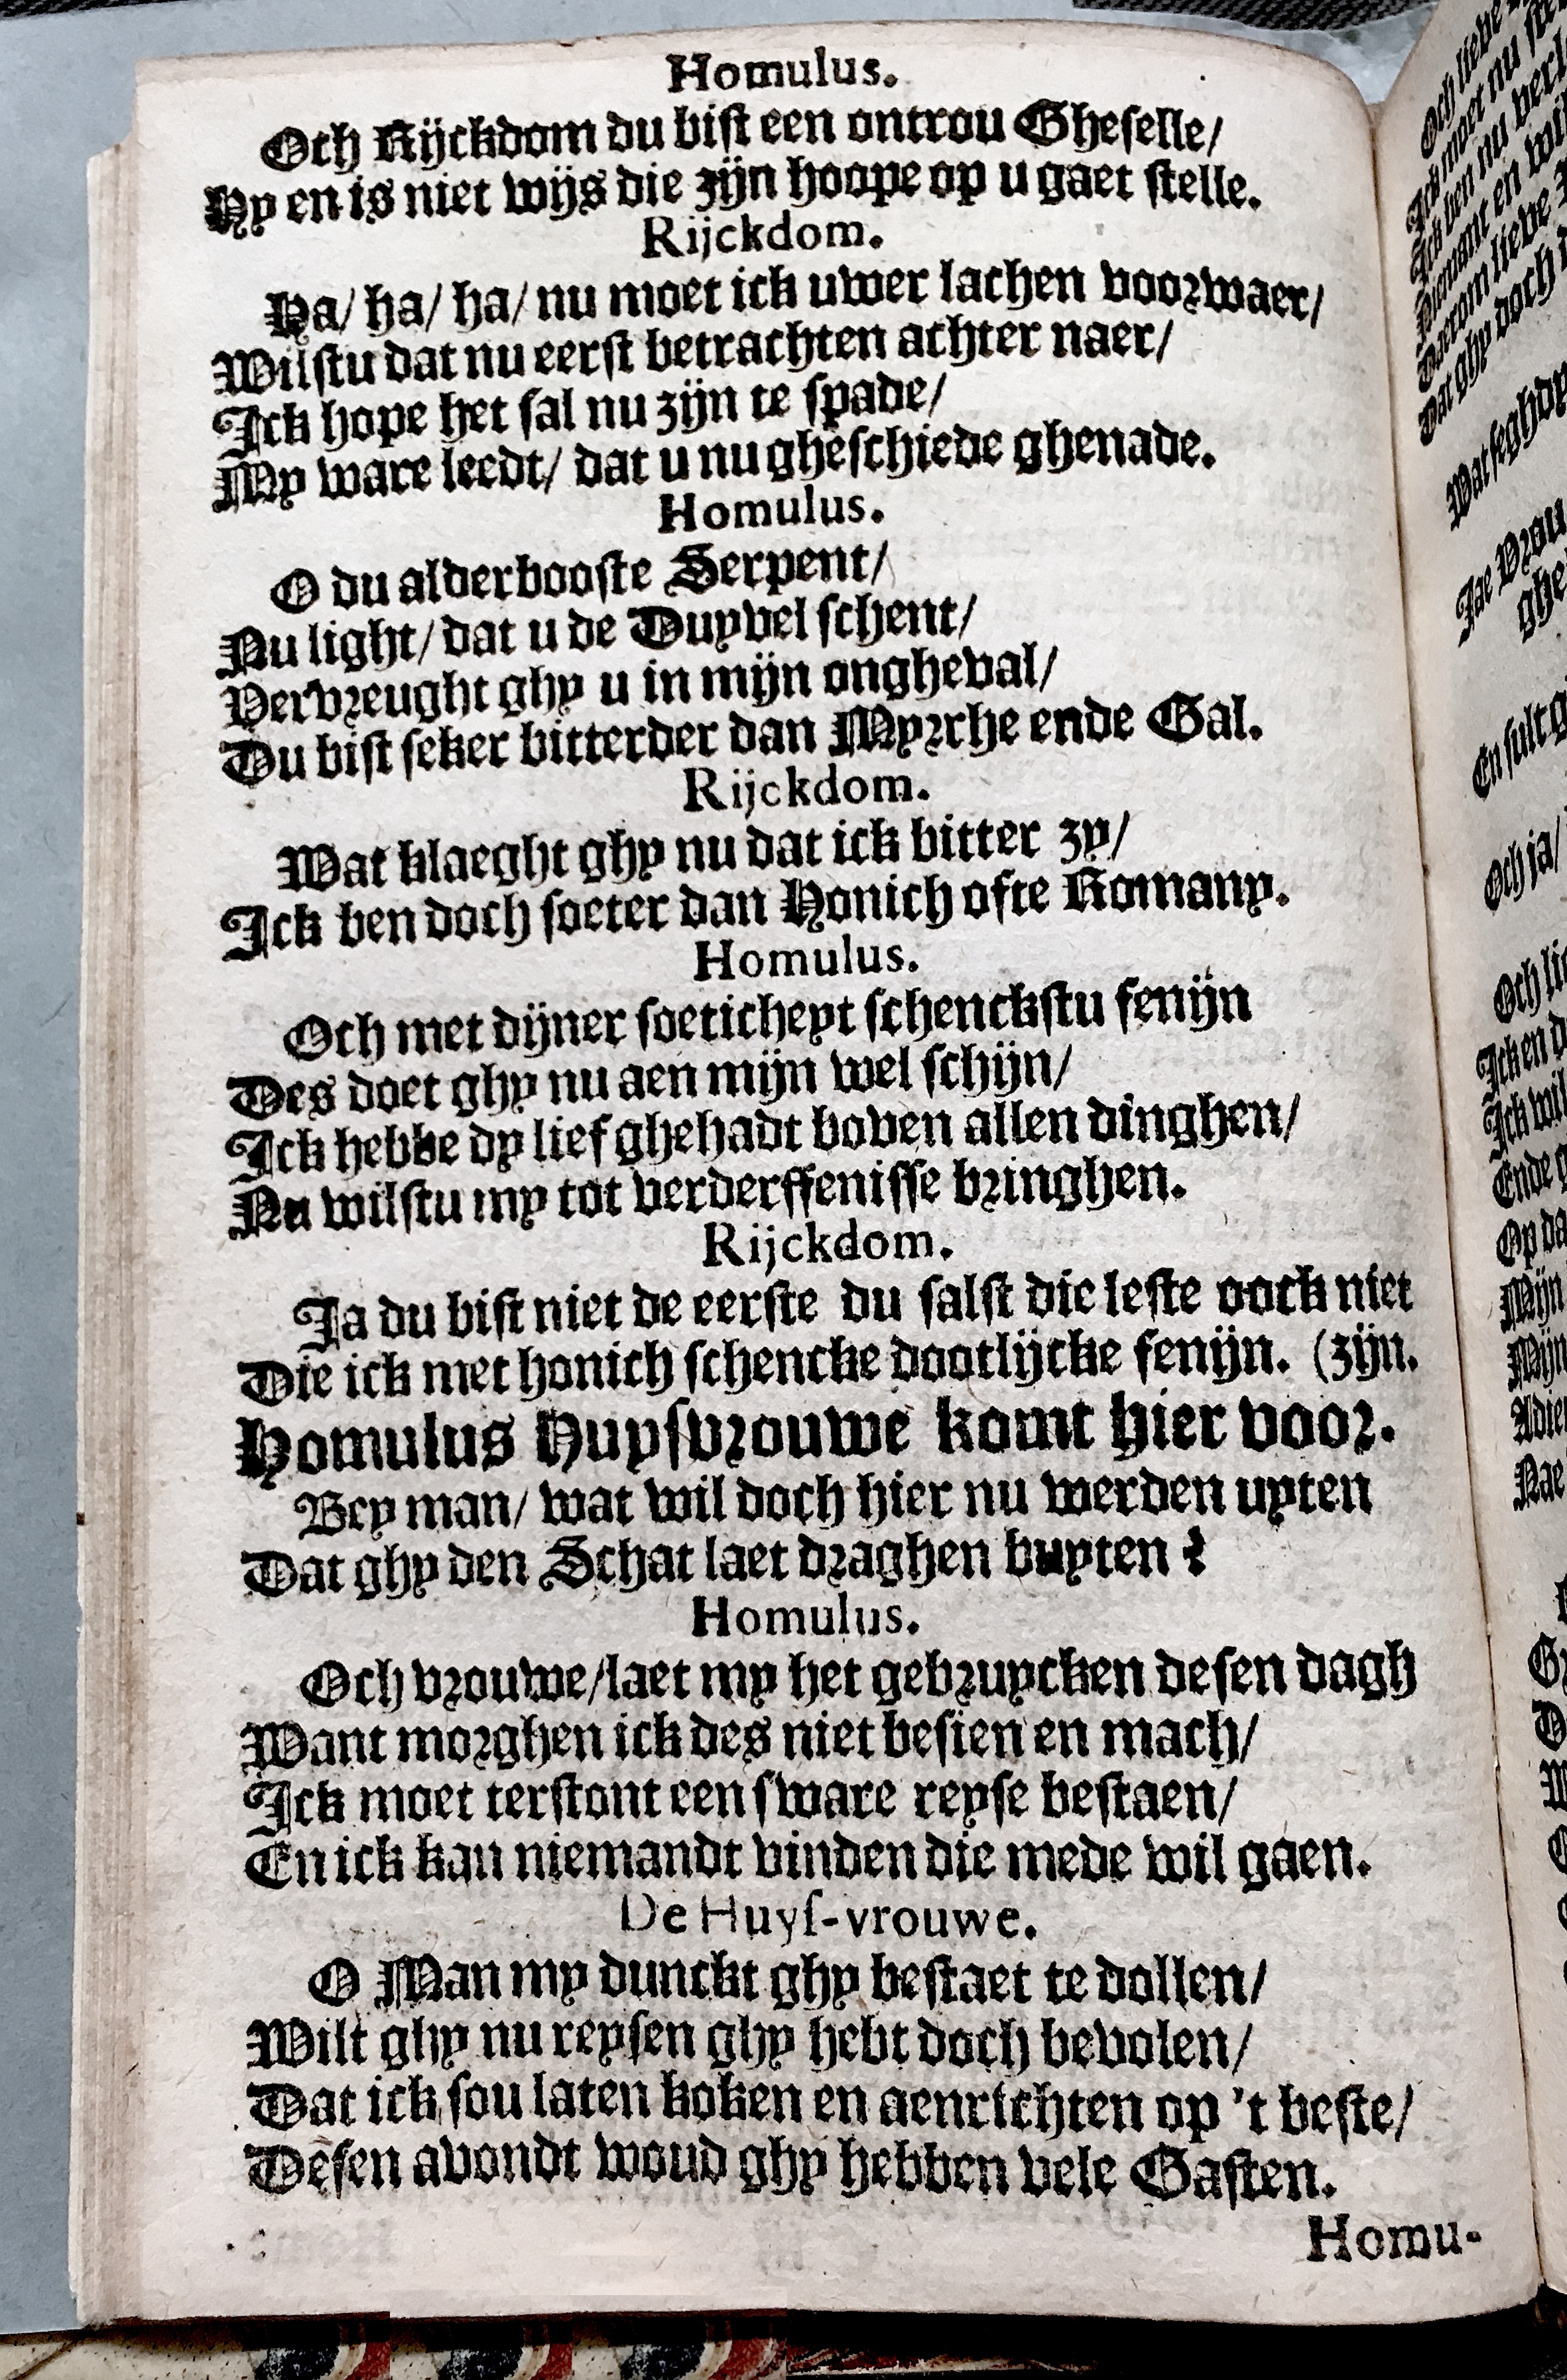 Homulus.
Och Rijckdom du bist een ontrou Gheselle/
Hy en is niet wijs die zijn hoope op u gaet stelle.
Rijckdom.
Ha/ ha/ ha/ nu moet ick uwer lachen voorwaer/
Wilstu dat nu eerst betrachten achter naer/
Ick hope het sal nu zijn te spade/
My ware leedt/ dat u nu gheschiede ghenade.
Homulus.
O du alderbooste Serpent/
Nu light/ dat u de Duyvel schent/
Vervreught ghy u in mijn ongheval/
Du bist seker bitterder dan Myrrhe ende Gal.
Rijckdom.
Wat klaeght ghy nu dat ick bitter zy/
Ick ben doch soeter dan Honich ofte Romany.
Homulus.
Och met dijner soeticheyt schenckstu fenijn
Des doet ghy nu aen mijn wel schijn/
Ick hebbe dy lief ghehadt boven allen dinghen/
Nu wilstu my tot verderffenisse bringhen.
Rijckdom.
Ja du bist niet de eerste du salst die leste oock niet
Die ick met honich schencke dootlijcke fenijn. (zijn.
Homulus Huysvrouwe komt hier voor.
Bey man/ wat wil doch hier nu werden uyten
Dat ghy den Schat laet draghen buyten?
Homulus.
Och vrouwe/laet my het gebruycken desen dagh
Want morghen ick des niet besien en mach/
Ick moet terstont een sware reyse bestaen/
En ick kan niemandt vinden die mede wil gaen.
De Huys-vrouwe.
O Man my dunckt ghy bestaet te dollen/
Wilt ghy nu reysen ghy hebt doch bevolen/
Dat ick sou laten koken en aenrichten op 't beste/
Desen avondt woud ghy hebben vele Gasten.
Homu-
Och liebe
Ick moet nu
Ick ben nu
Niemant en
Daerom liebe
Dat ghy doch
Wat seghdy
Jae Vrou
ghe
En sult
Och ja/
Och
Ick en
Ick wil
Ende
Op da
Mijn
Mijn
Adieu
Nae